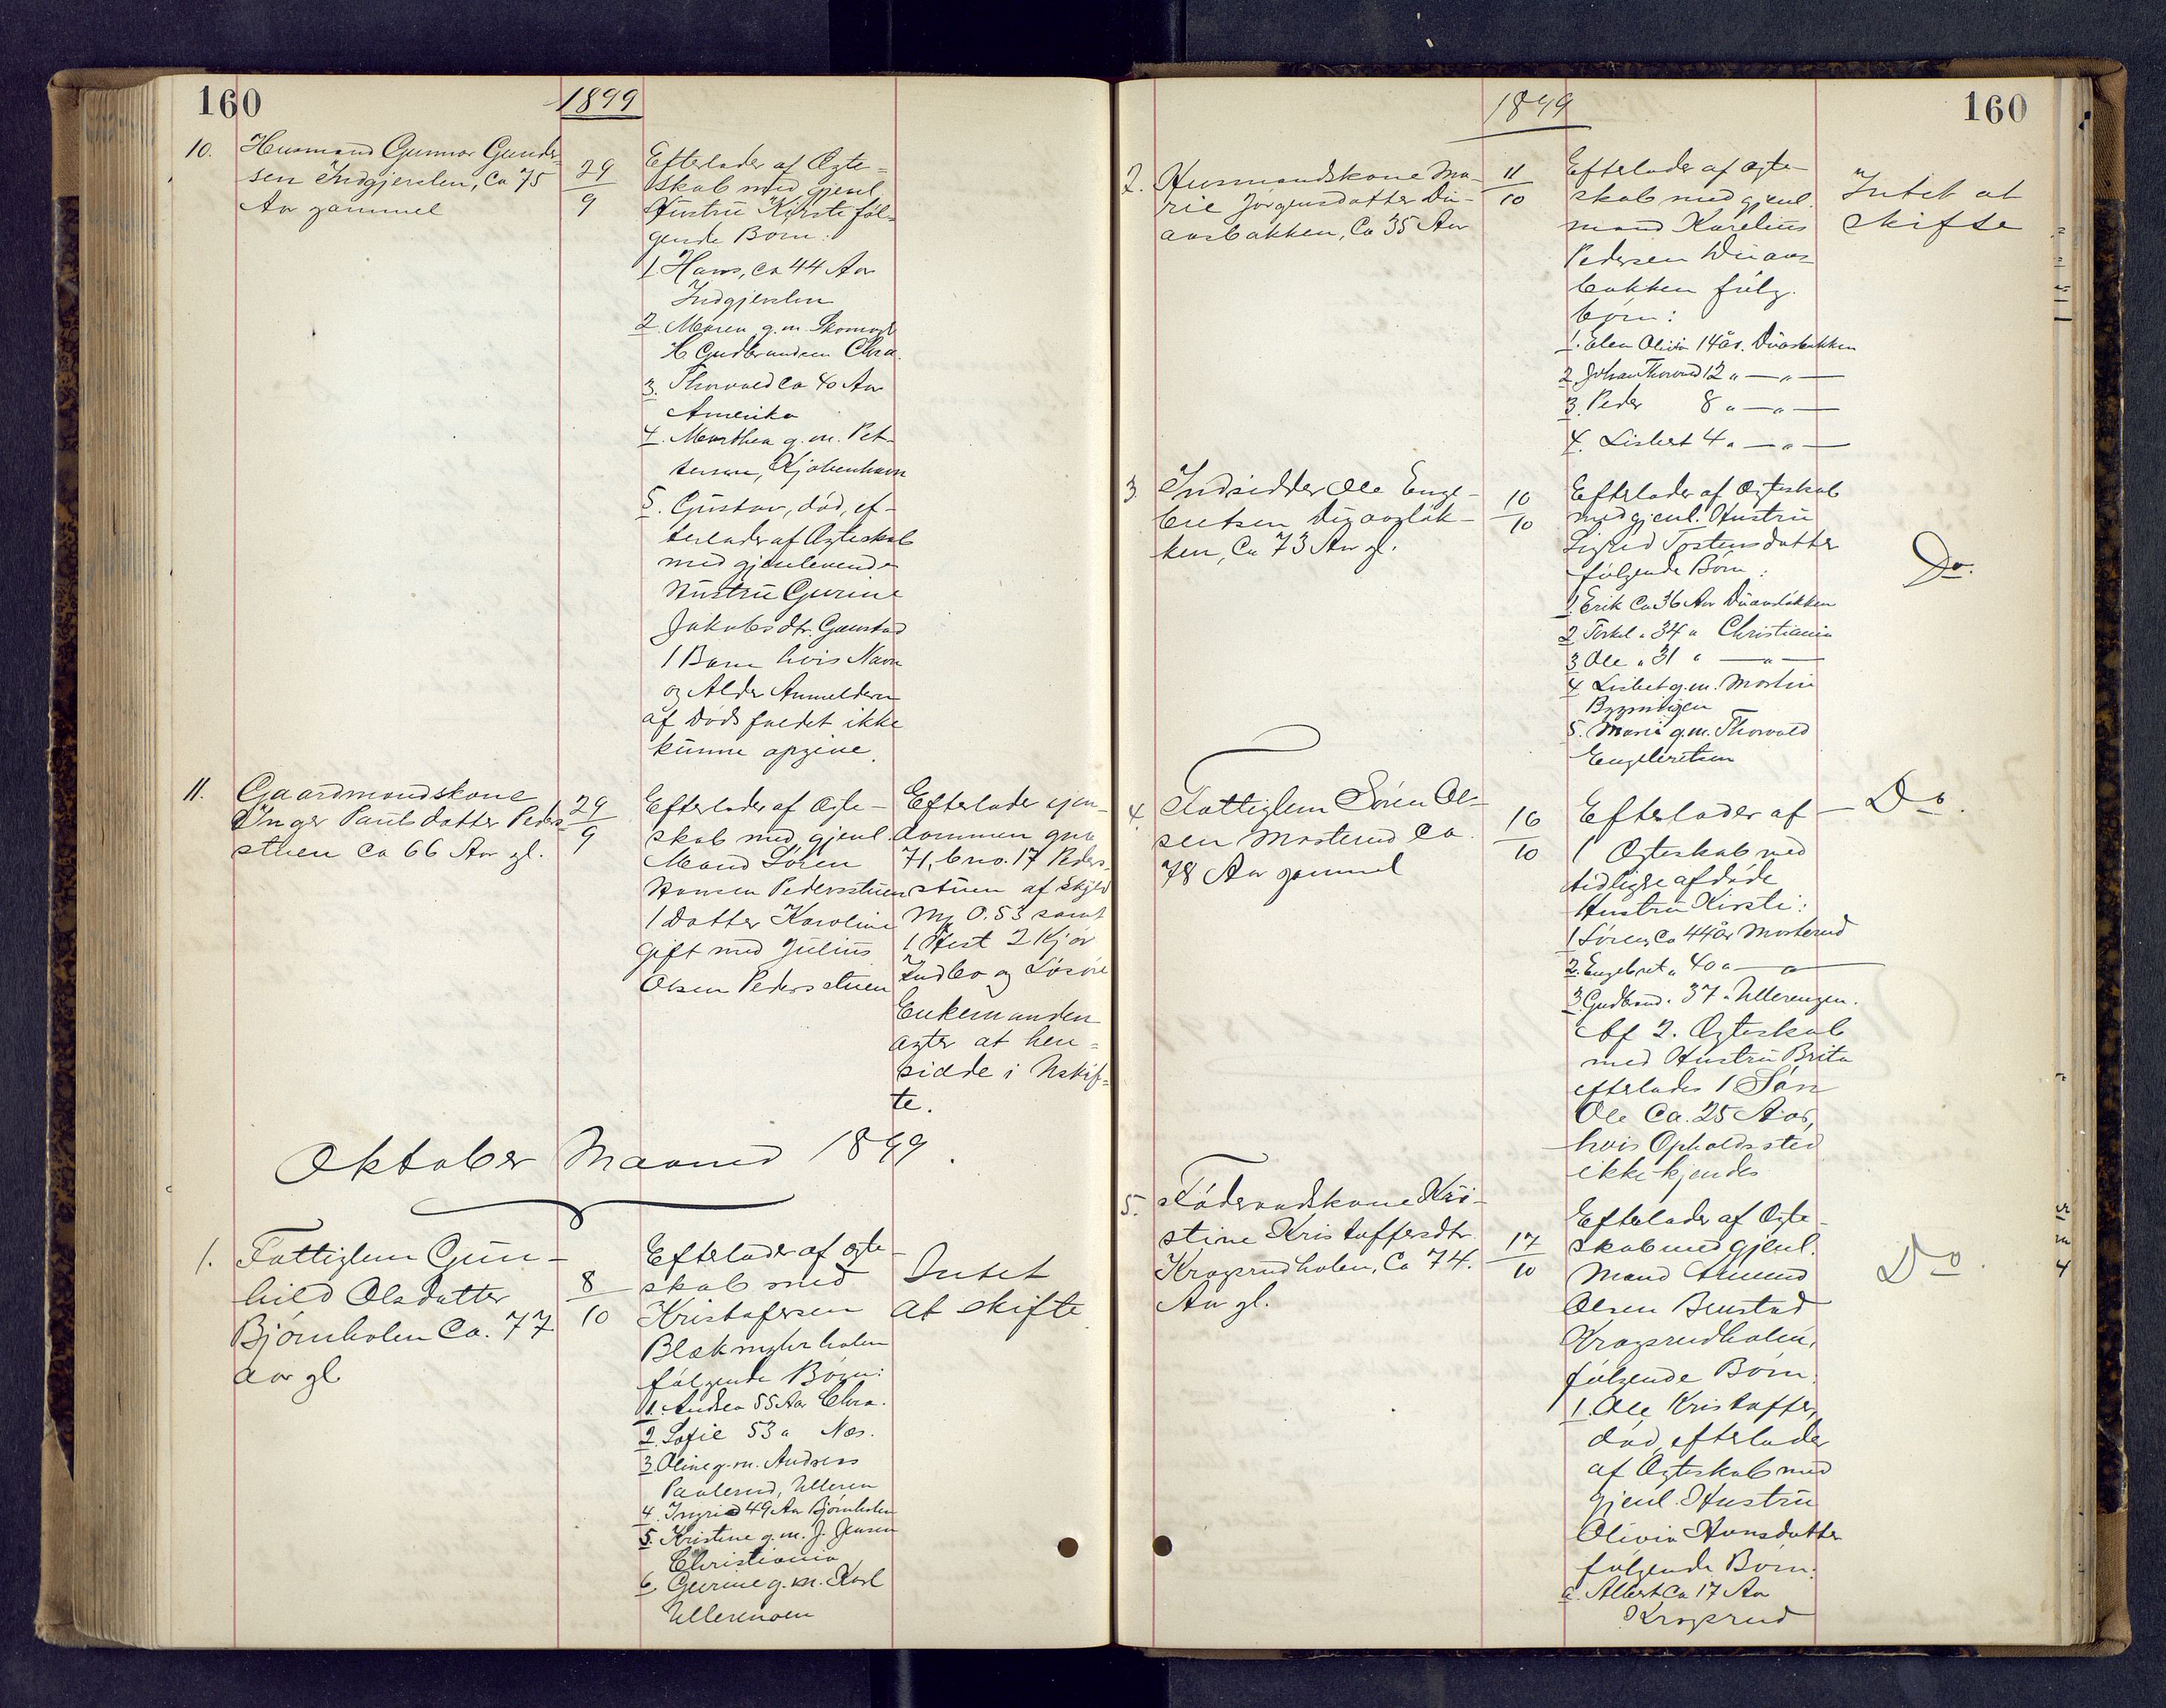 160
1899
10. Husmand Gunnar Gunder-
sen Indgjerslen, Ca 75
Aar gammel
29
9
Efterlader af Ægte-
skab med gjenl.
Hustru Kirsti føl-
gende Børn:
1 Hans, ca 44 Aar
Indgjerslen
2. Maren g. m. Skomag.
H Gudbrandsen Chra.
3. Thorvald Ca 40 Aar
Amerika
4. Marthea g. m. Pet-
tersen, Kjøbenhavn
5. Gustav, død, ef-
terlader af Ægteskab
med gjenlevende
Hustru Gurine
Jakobsdtr. Gaustad
1 Barn hvis Navn
og Alder Anmelderen
af Dødsfaldet ikke
kunne opgive.
11. Gaardmandskone
Inger Paulsdatter Peders-
stuen Ca 66 Aar gl.
29
9
Efterlader af Ægte-
skab med gjenl.
Mand Søren
Hansen Pedersstuen
1 Datter Karoline
gift med Julius
Olsen Pedersstuen
Efterlader ejen-
dommen gno
71, bno. 17 Peders-
stuen af Skyld
Mk 0.53 samt
1 Hest 2 Kjør
Indbo og Løsøre
Enkemanden
agter at hen-
sidde i Uskif-
te.
Oktober Maaned 1899.
1. Fattiglem Gun-
hild Olsdatter
Bjørnholen Ca. 77
aar gl
8
10
Efterlader af ægte-
skab med
Kristofersen
Blekmyhrholen
følgende Børn:
1. Andrea 55 Aar Chra.
2. Sofie 53 " Nes.
3. Oline g. m. Andreas
Paulerud, Ulleren
4. Ingrid 49 Aar Bjørnholen
5. Kristine g. m. J. Jensen
Christiania
6. Gurine g. m. Karl
Ullerenoen
Intet
at skifte
1899
160
2. Husmandskone Ma-
rie Jørgensdatter Du-
aasbakken, Ca 35 Aar
11
10
Efterlader af ægte-
skab med gjenl.
mand Karelius
Pedersen Duaas-
bakken følg.
børn:
1. Elen Olivia 14 år. Duåsbakken
2. Johan Thorvald 12 " — " —
3. Peder 8 " — " —
4. Lisbet 4 " — " —
Intet at
skifte
3. Indsidder Ole Enge-
bretsen Duaasløk-
ken, Ca 73 Aar gl.
10
10
Efterlader af Ægteskab
med gjenl. Hustru
Sigrid Tostensdatter
følgende Børn:
1. Erik Ca 36 Aar Duaasløkken
2 Torkel " 34 " Christiania
3 Ole " 31 " — " —
4 Lisbet g. m. Martin
5. Marie g. m. Thorvald
Engebretsen
Do.
4. Fattiglem Søren Ol-
sen Mosterud Ca
78 Aar gammel
16
10
Efterlader af
1 Ægteskab med
tidligere afdøde
Hustru Kirsti:
1 Søren, Ca 44 år Mosterud
2. Engebret " 40 " — " —
3 Gudbrand " 37 " Ullerengen.
Af 2. Ægteskab
med Hustru Brita
efterlades 1 Søn
Ole Ca. 25 Aar,
hvis Opholdssted
ikke kjendes
Do.
5. Føderaadskone Kri-
stine Kristoffersdtr.
Kragsrudholen, Ca 74.
Aar gl.
17
10
Efterlader af Ægte-
skab med gjenl.
Mand Amund
Olsen Benstad
Kragsrudholen,
følgende Børn:
1. Ole Kristoffer,
død, efterlader
af Ægteskab med
gjenl. Hustru
Olivia Hansdatter
følgende Børn:
a. Albert Ca 17 Aar
Kragsrud
Do.